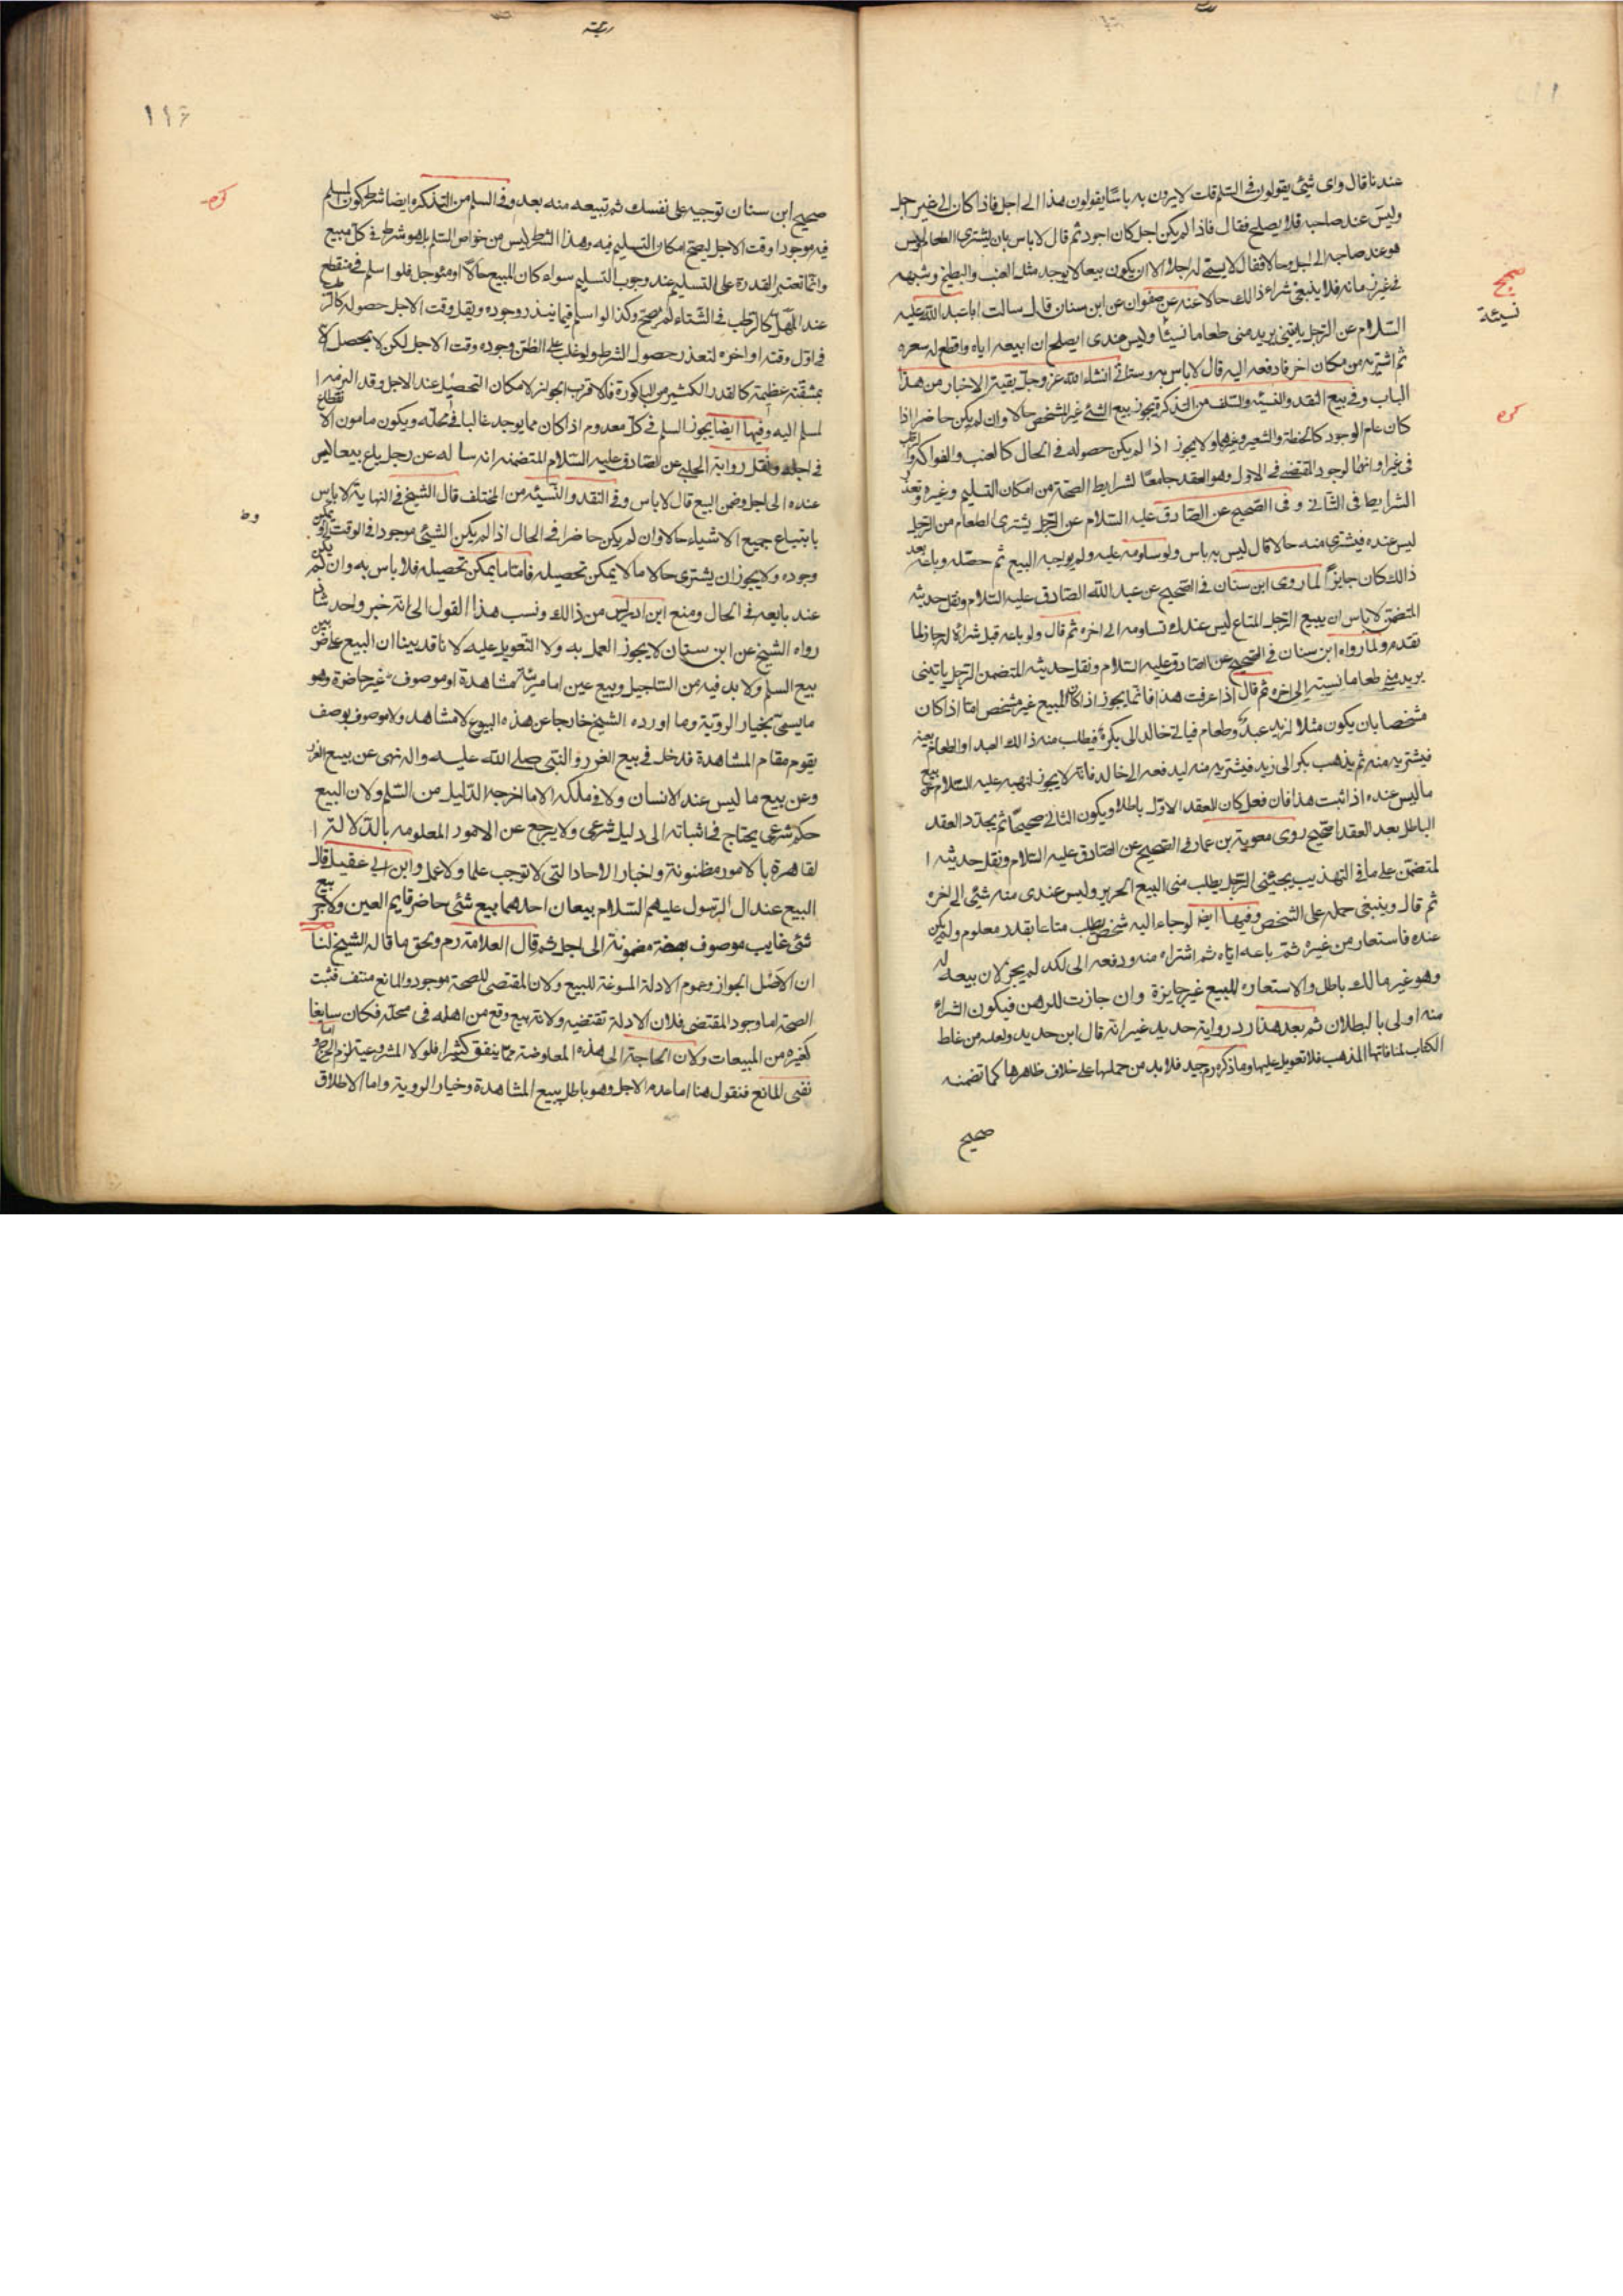 عندنا قال وای شئی یقولون فی السلم قلت لا یرون به باسا یقولون هذا الی اجل فاذا کان الی غیر اجل
ولیس عند صاحبه فلا یصلح فقال فاذا لم یکن اجل کان اجود ثم قال لا باس بان یشتری الطعام ولیس
هو عند صاحبه الی اجل وحالا فقال لا یسمی له اجلا الا ان یکون بیعا لا یوجد مثل العنب والبطیخ وشبهه
فی غیر زمانه فلا ینبغی شراء ذالك حالا عنه عن صفوان عن ابن سنان قال سالت ابا عبد الله علیه
السلام عن الرجل یاتینی یرید منی طعاما نسیئا ولیس عندی ایصلح ان ابیعه ایاه واقطع له سعره
ثم اشتریه من مکان اخر فادفعه الیه قال لا باس به وستاتی انشاء الله عز وجل بقیة الاخبار من هذا
الباب وفی بیع النقد والنسیئه والسلف من التذکرة یجوز بیع الشئ غیر المشخص حالا وان لم یکن حاضرا اذا
کان عام الوجود کالحنطة والشعیر وغیرهما ولا یجوز اذا لم یکن حصوله فی الحال کالعنب والفواکه
فی غیر اوانها لوجود المقتضی فی الاول وهو العقد جامعا لشرایط الصحة من امکان التسلیم وغیره وتعذر
الشرایط فی الثانی و فی الصحیح عن الصادق علیه السلام عن الرجل یشتری الطعام من الرجل
لیس عنده فیشتری منه حالا قال لیس به باس ولو ساومه علیه ولم یوجبه البیع ثم حصله وباعه بعد
ذالك کان جایزا لما روی ابن سنان فی الصحیح عن عبد الله الصادق علیه السلام ونقل حدیثه
المتضمن لا باس ان یبیع الرجل المتاع لیس عندك تساومه الی اخره ثم قال ولو باعه قبل شرائه له جاز لما
تقدم ولما رواه ابن سنان فی الصحیح عن الصادق علیه السلام ونقل حدیثه المتضمن الرجل یاتینی
یرید منی طعاما نسیئه الی اخره ثم قال اذا عرفت هذا فانما یجوز اذا کان المبیع غیر مشخص اما اذا کان
مشخصا بان یکون مثلا لزید عبد وطعام فیاتی خالد الی بکر فیطلب منه ذالك العبد او الطعام بعینه
فیشتریه منه ثم یذهب بکر الی زید فیشتریه منه لیدفعه الی خالد فانه لا یجوز لنهیه علیه السلام عن بیع
ما لیس عنده اذا ثبت هذا فان فعل کان العقد الاول باطلا ویکون الثانی صحیحا ثم یجدد العقد
الباطل بعد العقد الصحیح روی معویة بن عمار فی الصحیح عن الصادق علیه السلام ونقل حدیثه ا
لمتضمن علی ما فی التهذیب یجیئنی الرجل یطلب منی البیع الحریر ولیس عندی منه شئی الی اخره
ثم قال وینبغی حمله علی الشخص وفیها ایضا لو جاء الیه شخص یطلب متاعا بقدر معلوم ولم یکن
عنده فاستعار من غیره ثم باعه ایاه ثم اشتراه منه ودفعه الی لکه لم یجز لان بیعه له
وهو غیر مالك باطل والاستعاره للبیع غیر جایزة وان جازت للرهن فیکون الشراء
منه اولی بالبطلان ثم بعد هذا رد روایة حدید غیر انه قال ابن حدید ولعله من غلط
الکتاب لمنافاتها المذهب فلا تعویل علیها وما ذکره رم جید فلا بد من حملها علی خلاف ظاهرها کما تضمنه
صحیح
صحیح
نسیئة
۱۱۶
صحیح ابن سنان توجیه علی نفسك ثم تبیعه منه بعد وفی السلم من التذکره ایضا شرط کون المسلم
فیه موجودا وقت الاجل لیصح امکان التسلیم فیه وهذا الشرط لیس من خواص السلم بل هو شرط فی کل مبیع
وانما تعتبر القدرة علی التسلیم عند وجوب التسلیم سواء کان المبیع حالا او مؤجل فلو اسلم فی منقطع
عند المحل کالرطب فی الشتاء لم یصح وکذا لو اسلم فیما یندر وجوده ویقل وقت الاجل حصوله کالرطب
فی اول وقته او اخره لتعذر حصول الشرط ولو غلب علی الظن وجوده وقت الاجل لکن لا یحصل الا
بمشقة عظیمة کالقدر الکثیر من الباکورة فالاقرب الجواز لامکان التحصیل عند الاجل وقد التزمه ا
لمسلم الیه وفیها ایضا یجوز السلم فی کل معدوم اذا کان مما یوجد غالبا فی محله ویکون مامون الانقطاع
فی اجله ونقل روایة الحلبی عن الصادق علیه السلام المتضمنه انه ساله عن رجل باع بیعا لیس
عنده الی اجل وضمن البیع قال لا باس وفی النقد والنسیئه من المختلف قال الشیخ فی النهایة لا باس
بابتیاع جمیع الاشیاء حالا وان لم یکن حاضرا فی الحال اذا لم یکن الشئی موجودا فی الوقت او یمکن
وجوده ولا یجوز ان یشتری حالا ما لا یمکن تحصیله فاما ما یمکن تحصیله فلا باس به وان لم یکن
عند بایعه فی الحال ومنع ابن ادریس من ذالك ونسب هذا القول الی انه خبر واحد شاذ
رواه الشیخ عن ابن سنان لا یجوز العمل به ولا التعویل علیه لانا قد بینا ان البیع علی ضربین
بیع السلم ولا بد فیه من التاجیل وبیع عین اما مرئیة مشاهدة او موصوف غیر حاضرة وهو
ما یسمی بخیار الرویة وما اورده الشیخ خارجا عن هذه البیوع لا مشاهد ولا موصوف بوصف
یقوم مقام المشاهدة فدخل فی بیع الغرر والنبی صلی الله علیه واله نهی عن بیع الغرر
وعن بیع ما لیس عند الانسان ولا فی ملکه الا ما اخرجه الدلیل من السلم ولان البیع
حکم شرعی یحتاج فی اثباته الی دلیل شرعی ولا یرجع عن الامور المعلومه بالدلالة ا
لقاهرة بالامور مظنونة واخبار الاحاد التی لا توجب علما ولا عمل وابن ابی عقیل قال
البیع عند ال الرسول علیهم السلام بیعان احدهما بیع شئی حاضر قایم العین والاخر بیع
شئی غایب موصوف بصفة مضمونة الی اجل ثم قال العلامة رم ونحق ما قاله الشیخ لنا
ان الاصل الجواز وعموم الادلة المسوغة للبیع ولان المقتضی للصحة موجود والمانع منتف فثبت
الصحة اما وجود المقتضی فلان الادلة تقتضیه ولانه بیع وقع من اهله فی محله فکان سایغا
کغیره من المبیعات ولان الحاجة الی هذه المعاوضة مما یتفق کثیرا فلولا المشروعیة لزم الحرج واما
نفی المانع فنقول هنا اما عدم الاجل وهو باطل ببیع المشاهدة وخیار الرویة واما الاطلاق